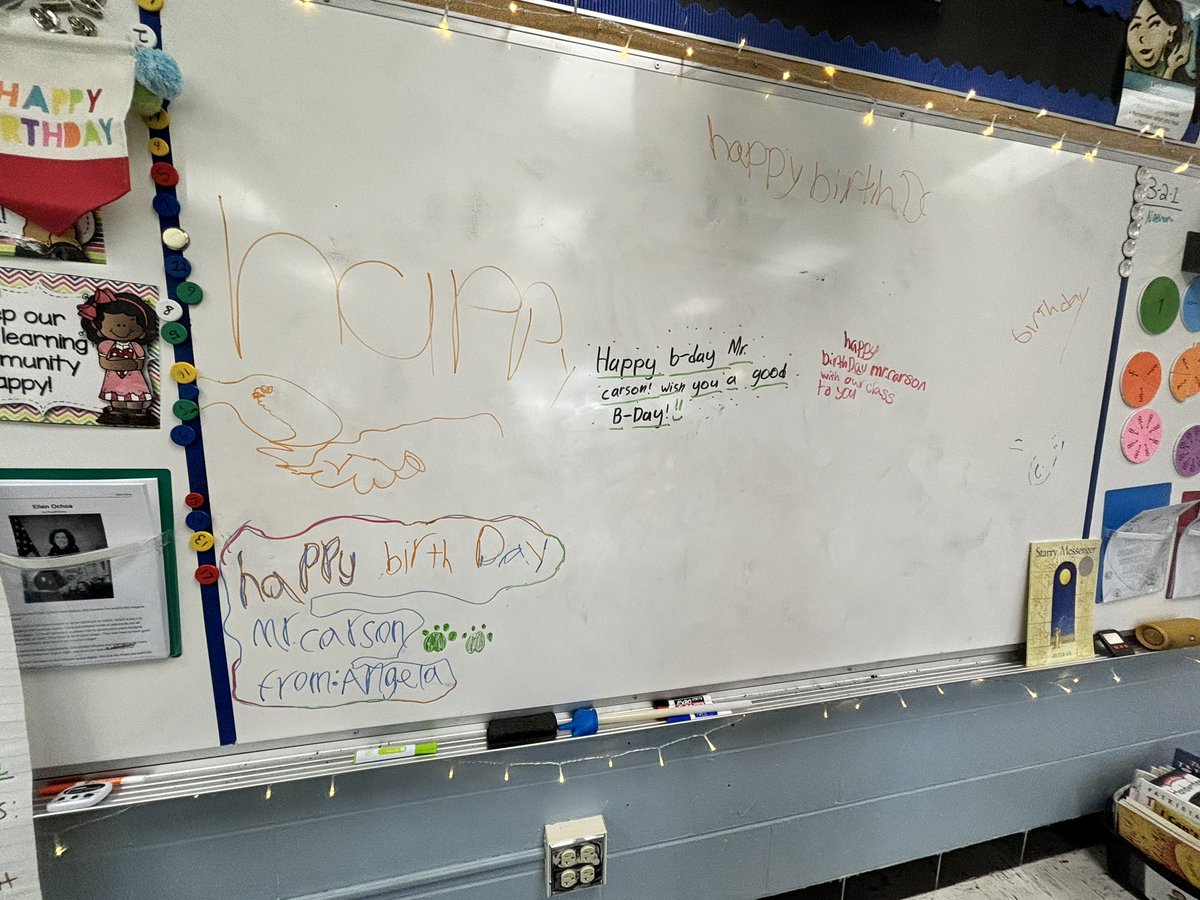 HAPPY
BIRTHDAY
happy birth D
happy
birthday
3-2-1
Happy b-day Mr.
carson! wish you a good
B-Day!
happy
birthDay mr.carson
with our class
to you
happy birth Day
mr.carson
from:Angela
ep our
learning
mmunity
appy!
Ellen Ochoa
Starry Messenger